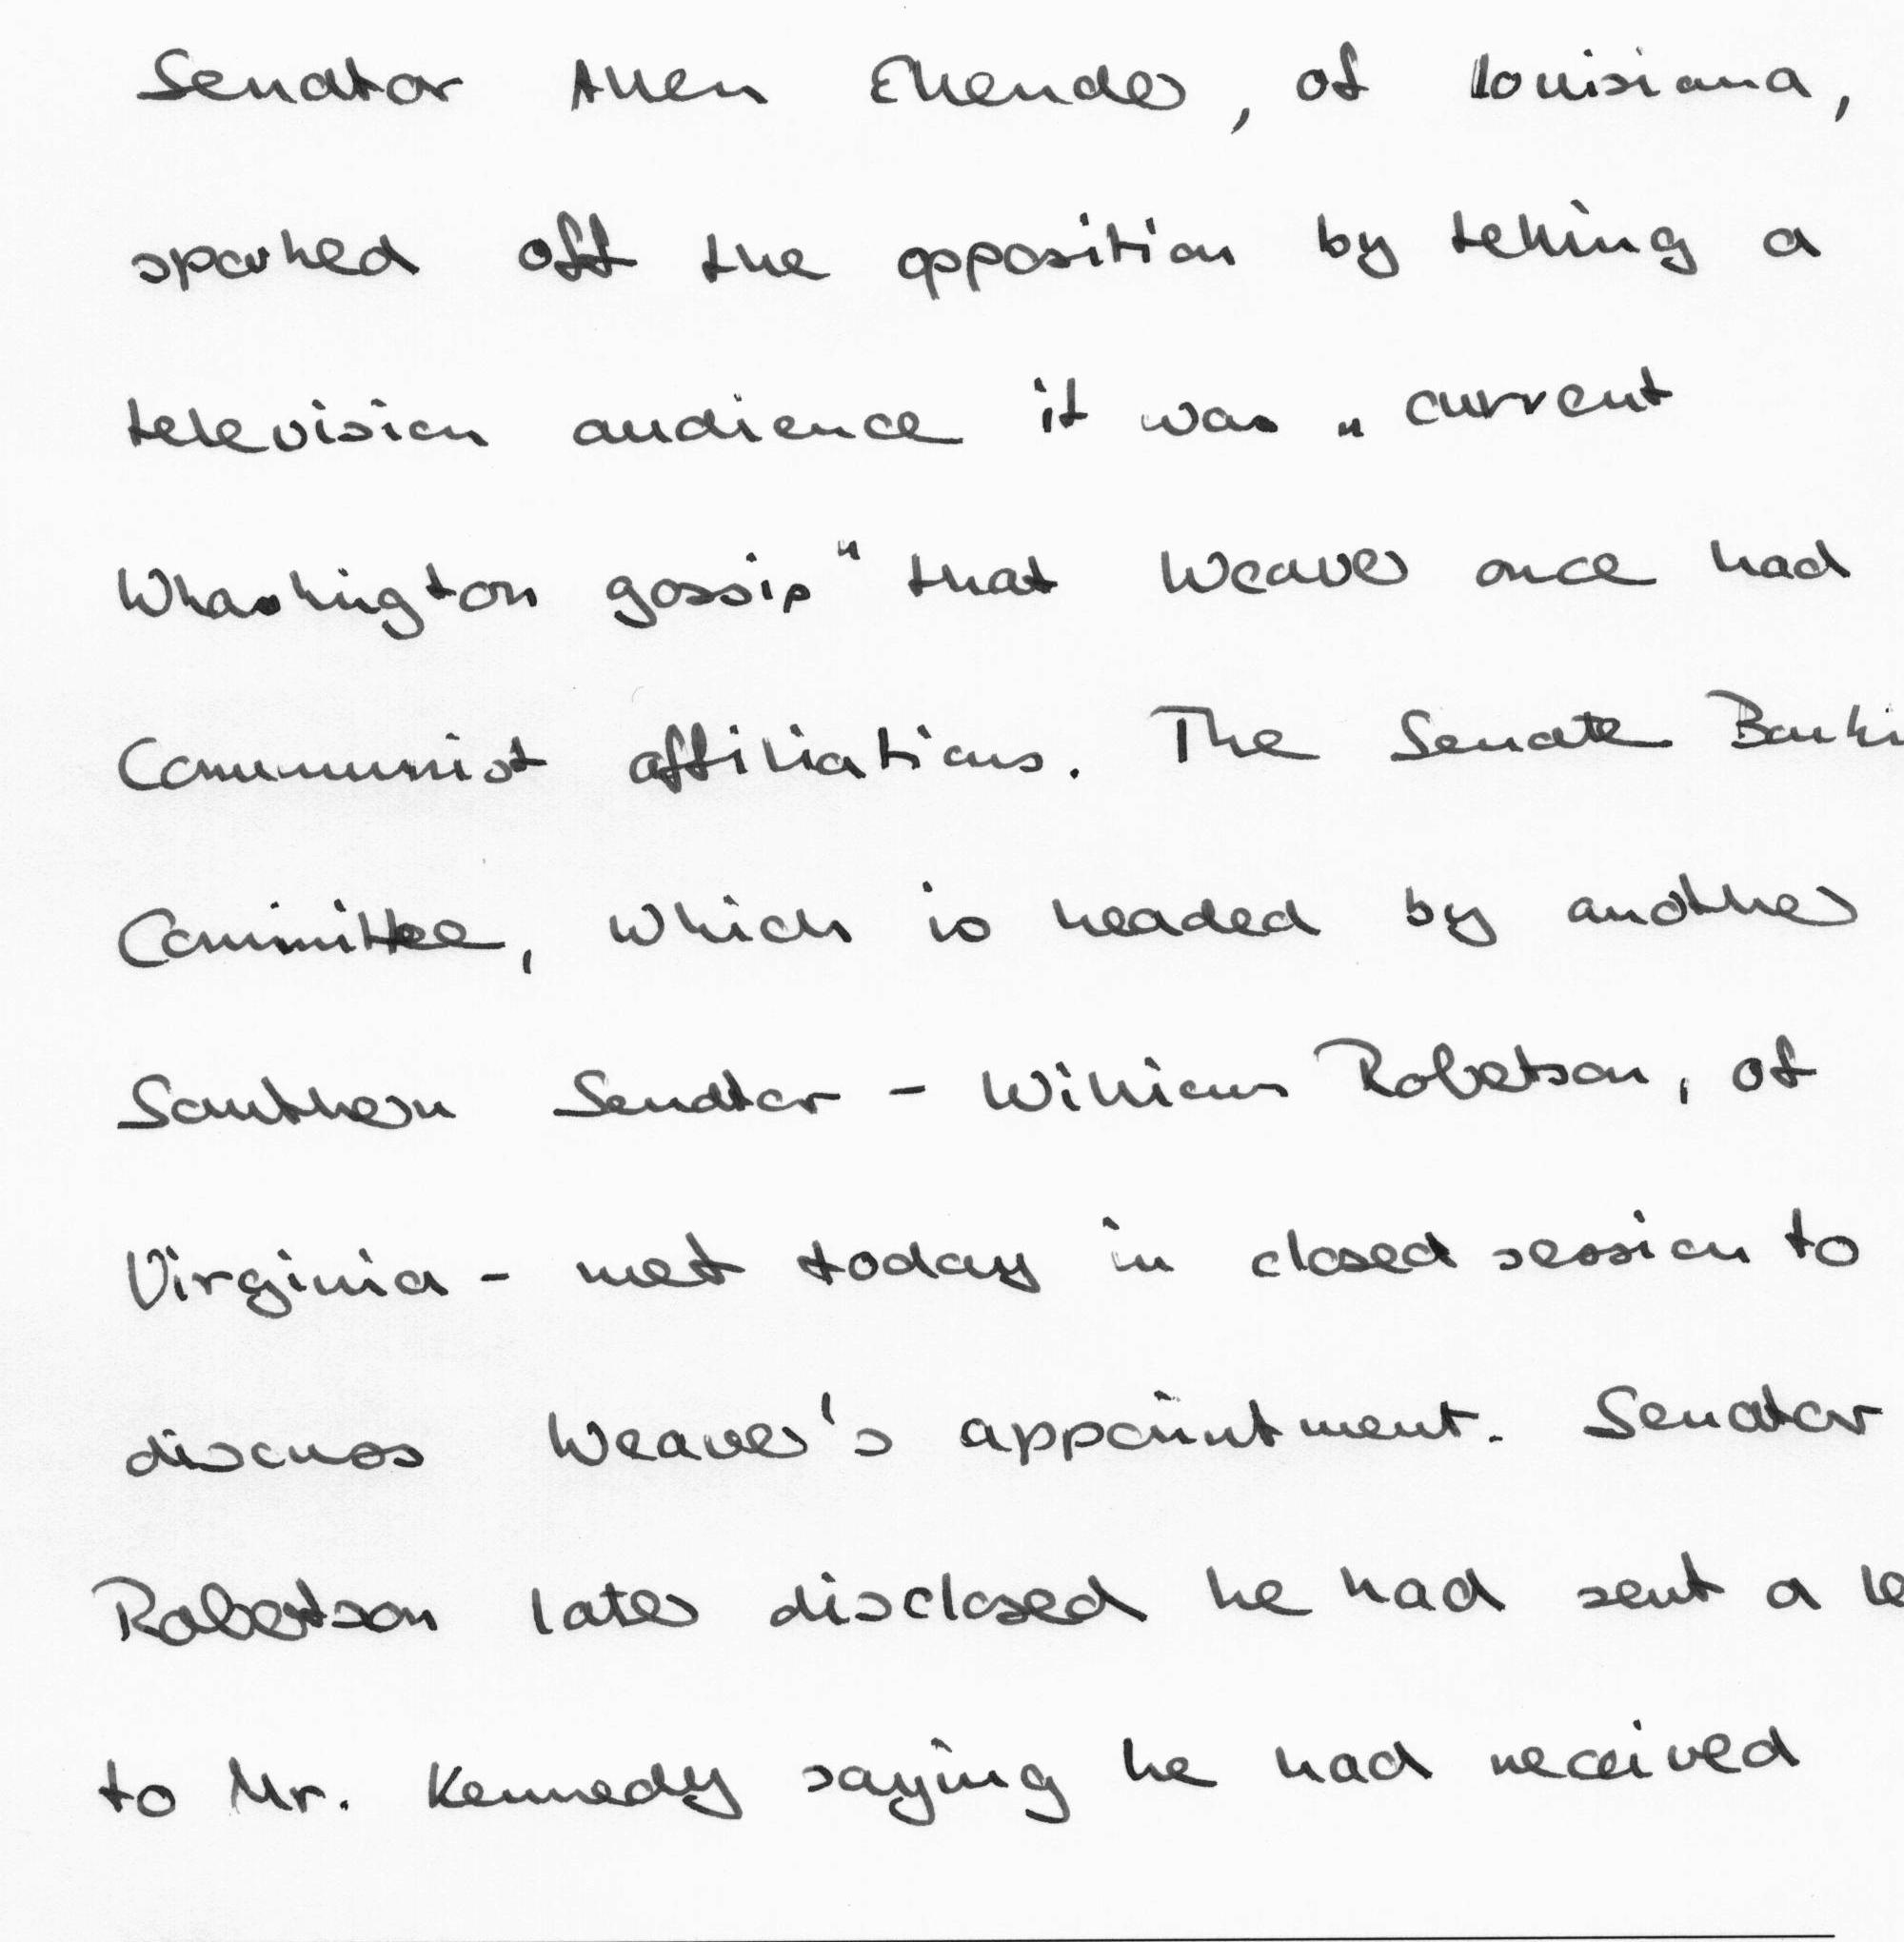 Senator Allen Ellender, of Louisiana,
sparked off the opposition by telling a
television audience it was "current
Whashington gossip" that Weaver once had
Communist affiliations. The Senate Banki
Committee, which is headed by another
Southern Senator - William Robertson, of
Virginia - met today in closed session to
discuss Weaver's appointment. Senator
Robertson later disclosed he had sent a le
to Mr. Kennedy saying he had received